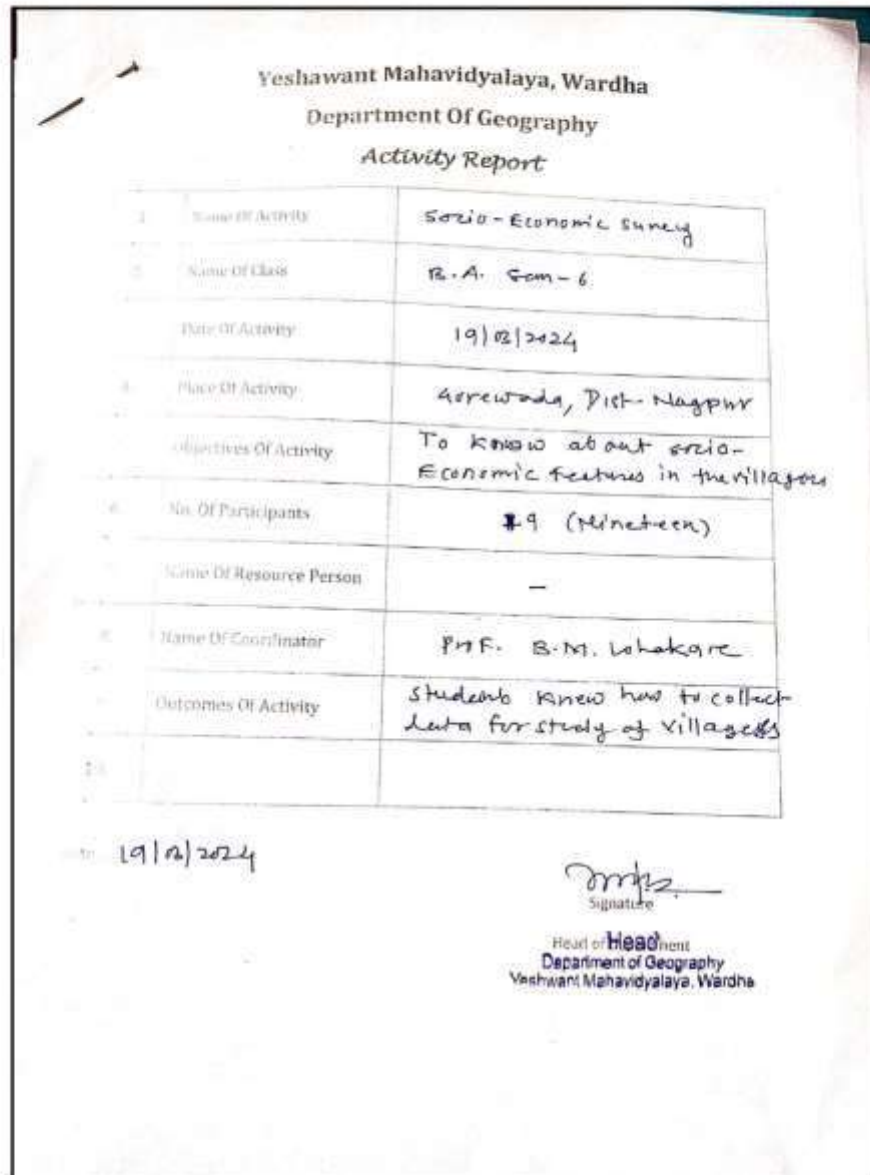 Yeshawant Mahavidyalaya, Wardha
Department Of Geography
Activity Report
1 Name Of Activity Socio-Economic Survey
2 Name Of Class B.A. Sem-6
Date Of Activity 19/02/2024
4 Place Of Activity Gorewada, Dist- Nagpur
Objectives Of Activity To know about socio-
Economic features in the villages
6 No. Of Participants 19 (Nineteen)
Name Of Resource Person –
8 Name Of Coordinator Prof. B.M. Lohakare
Outcomes Of Activity Students knew how to collect
data for study of villages
10
19/02/2024
Signature
Head of Head ment
Department of Geography
Yeshwant Mahavidyalaya, Wardha